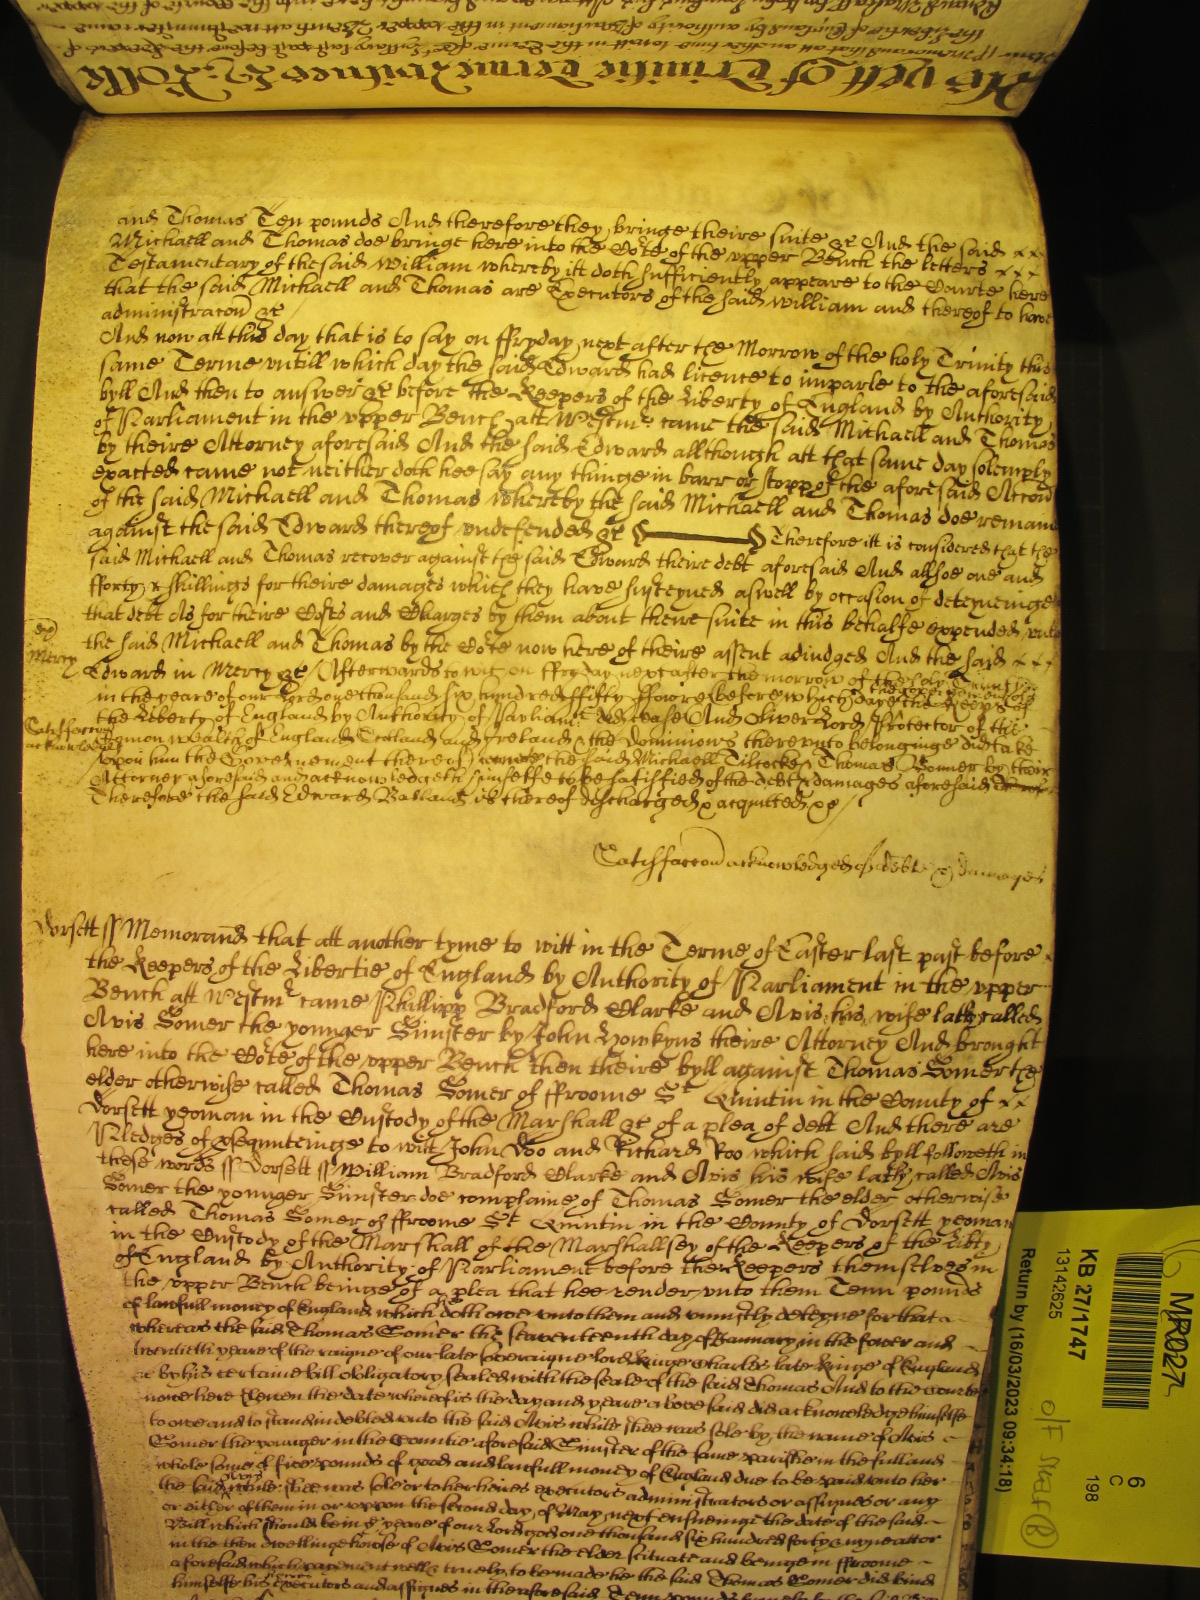 and Thomas Ten pounds And therefore they bringe theire suite &c And the said
Michaell and Thomas doe bringe here into the Co'te of the upper Bench the letters
Testamentary of the said William whereby itt doth sufficiently appeare to the Courte here
that the said Michaell and Thomas are Executors of the said William and thereof to have
administracon &c
And now att this day that is to say on ffryday next after the Morrow of the holy Trinity this
same Terme untill which day the said Edward had licence to imparle to the aforesaid
byll And then to answer &c before the Keepers of the Liberty of England by Authority
of Parliament in the upper Bench att Westmr came the said Michaell and Thomas
by theire Attorney aforesaid And the said Edward allthough att that same day solemply
exacted came not neither doth hee say any thinge in barr or stopp of the aforesaid Accon
of the said Michaell and Thomas whereby the said Michaell and Thomas doe remaine
against the said Edward thereof undefended &c Therefore itt is considered that the
said Michaell and Thomas recover against the said Edward theire debt aforesaid And allsoe one and
fforty shillings for theire damages which they have susteyned aswell by occasion of deteyneinge
that debt As for theire Costs and Charges by them about theire suite in this behalfe expended unto
the said Michaell and Thomas by the Co'te now here of theire assent adiudged And the said
Mercy
Edward in Mercy &c Afterwards to wit on ffryday next after the morrow of the holy Trinity
in the yeare of our Lord one thousand six hundred ffifty ffowre before which day the Keeps of
the Liberty of England by Authority of Parliamt did cease And Oliver Lord Protector of the
Satisfaccon
acknowledged
Comon wealth of England Scotland and Ireland & the dominions thereunto belonginge did take
upon him the Governement thereof came the said Michaell Tilocke & Thomas Bonner by their
Attorney aforesaid and acknowledgeth himselfe to be satisfied of the debt & damages aforesaid
Therefore the said Edward Balland is thereof discharged & acquitted &c
Satisfaccon acknowledged of debt & damages
Dorsett ss Memorand that att another tyme to witt in the Terme of Easter last past before
the Keepers of the Libertie of England by Authority of Parliament in the upper
Bench att Westmr came Phillipp Bradford Clarke and Avis his wife late called
Avis Somer the younger Sinster by John Howkyns theire Attorney And brought
here into the Co'te of the upper Bench then theire byll against Thomas Somer the
elder otherwise called Thomas Somer of ffroome St Quintin in the County of
Dorsett yeoman in the Custody of the Marshall &c of a plea of debt And there are
Pledges of &sequuteinge to witt John Doo and Richard Roo which said byll followeth in
these words ss Dorsett ss William Bradford Clarke and Avis his wife late called Avis
Somer the younger Sinster doe complaine of Thomas Somer the elder otherwise
called Thomas Somer of ffroome St Quintin in the County of Dorsett yeoman
in the Custody of the Marshall of the Marshallsey of the Keepers of the Libty
of England by Authority of Parliament before the Keepers themselves in
the upper Bench beinge of a plea that hee render unto them Tenn pounds
of lawfull money of England which hee doth owe unto them and uniustly deteyne for that
whereas the said Thomas Somer the seaventeenth day of January in the fower and
twentieth yeare of the raigne of our late soveraigne lord Kinge Charles late Kinge of England
&c by his certaine bill obligatory sealed with the seale of the said Thomas And to the Courte
nowe here shewen the date whereof is the day and yeare above said did acknowledge himselfe
to owe and to stand indebted unto the said Avis while shee was sole by the name of Avis
Somer the younger in the Countie aforesaid Sinster of the same parishe in the full and
whole some of five pounds of good and lawfull money of England due to be paid unto her
the said Avis while shee was sole or to her heires executors administrators or assignes or any
or either of them in or uppon the second day of May next ensueinge the date of the said
bill which should be in ye yeare of our Lord god one thousand six hundred forty nyne att or
in the then dwellinge house of Avis Somer the elder scituate and beinge in ffroome
aforesaid which payement well & truely to be made he the said Thomas Somer did bind
himselfe his executors and assignes in the aforesaid
KB 27/1747
13142625
Return by (16/03/2023 09:34:18)
6
C
198
MR027